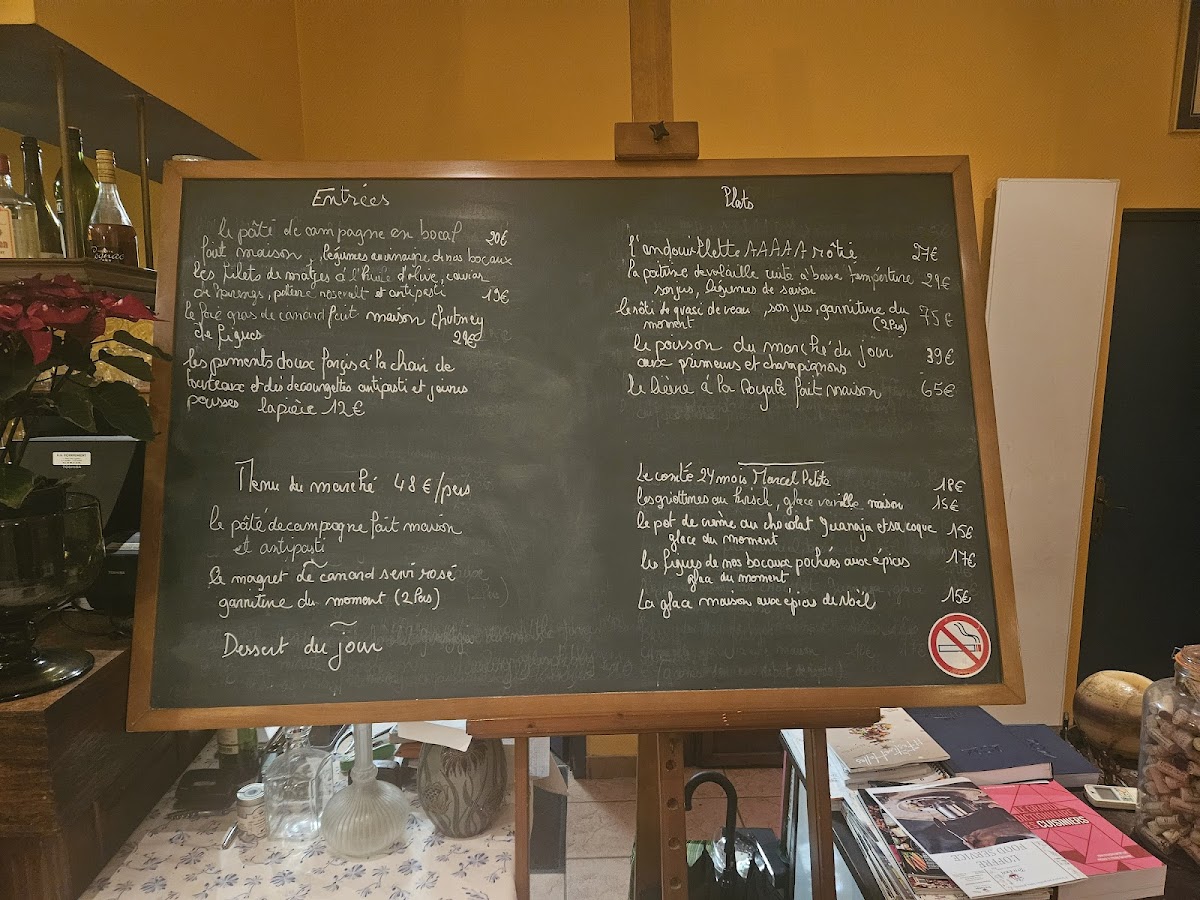 Entrées
le pâté de campagne en bocal 20€
fait maison, légumes au vinaigre de nos bocaux
les filets de matjes à l'huile d'olive, caviar
de harengs, pomme roseval et antipasti 19€
le foie gras de canard fait maison chutney
de figues 29€
les piments doux farçis à la chair de
tourteaux et des courgettes antipasti et jeunes
pousses la pièce 12€
Menu du marché 48€/pers
le pâté de campagne fait maison
et antipasti
le magret de canard servi rosé
garniture du moment (2 Pers)
Dessert du jour
Plats
l'andouillette AAAAA rôtie 27€
la poitrine de volaille cuite à basse température 29€
son jus, légumes de saison
le rôti de quasi de veau, son jus, garniture du 75€
moment (2 Pers)
le poisson du marché du jour 39€
aux primeurs et champignons
le lièvre à la Royale fait maison 65€
Le comté 24 mois Marcel Petite 18€
les griottines au kirsch, glace vanille maison 15€
le pot de crème au chocolat Guanaja et sa coque 15€
glace du moment
les figues de nos bocaux pochées aux épices 17€
glace du moment
La glace maison aux épices de Noël 15€
TOSHIBA
CUISINIERS
COFFRE
FOOD SERVICE